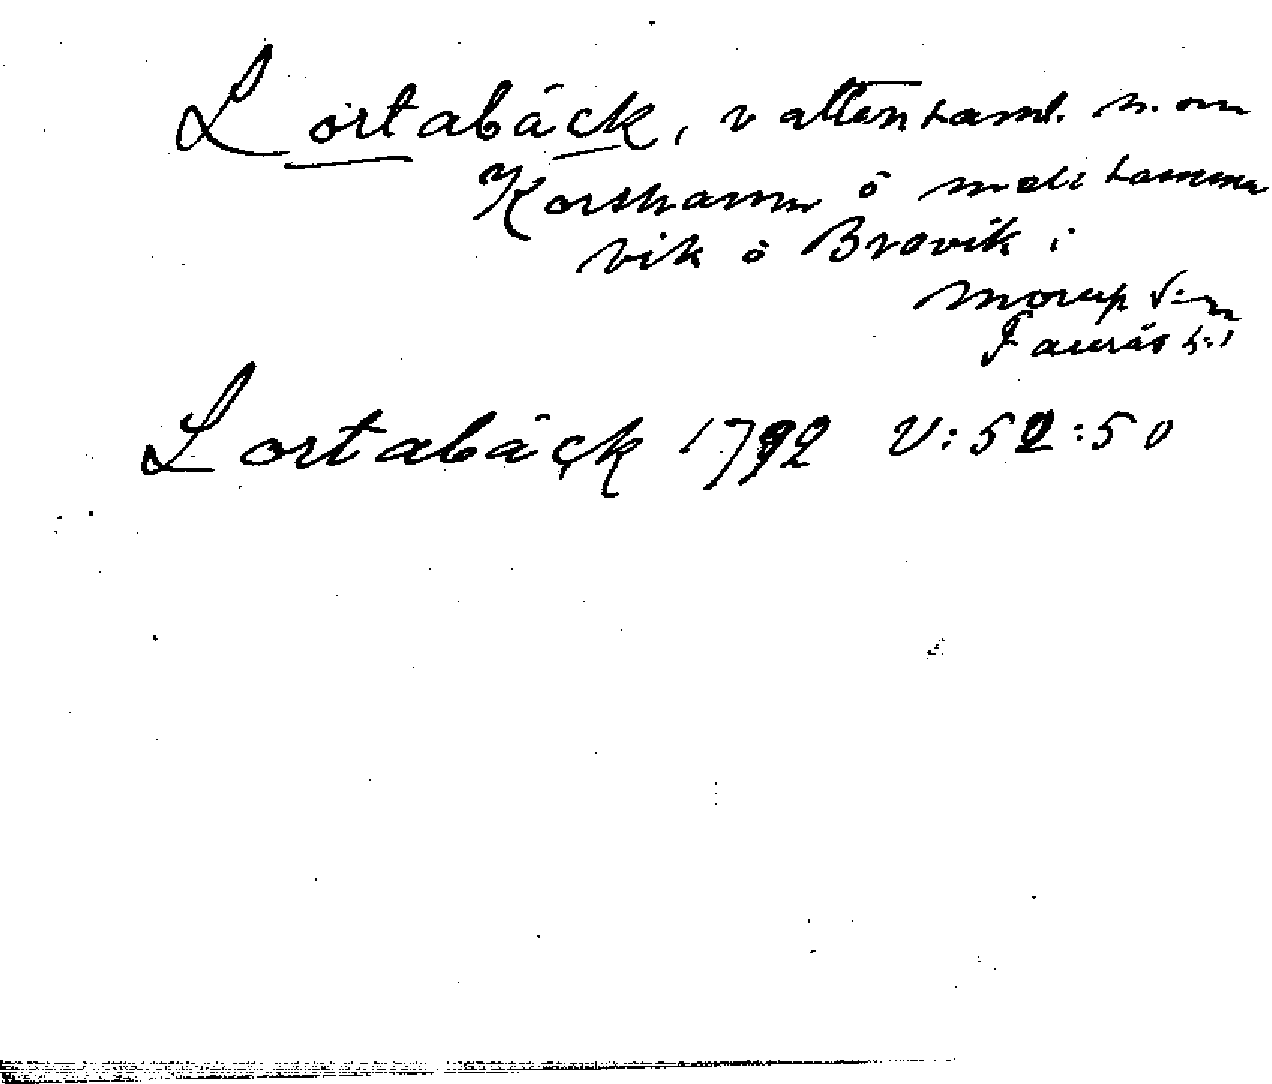 Lortabäck, vattensaml. n. om
Korshamn ö mell samma
vik ö Brovik i
Morup s:n
Faurås h:d
Lortabäck 1792 V:52:50